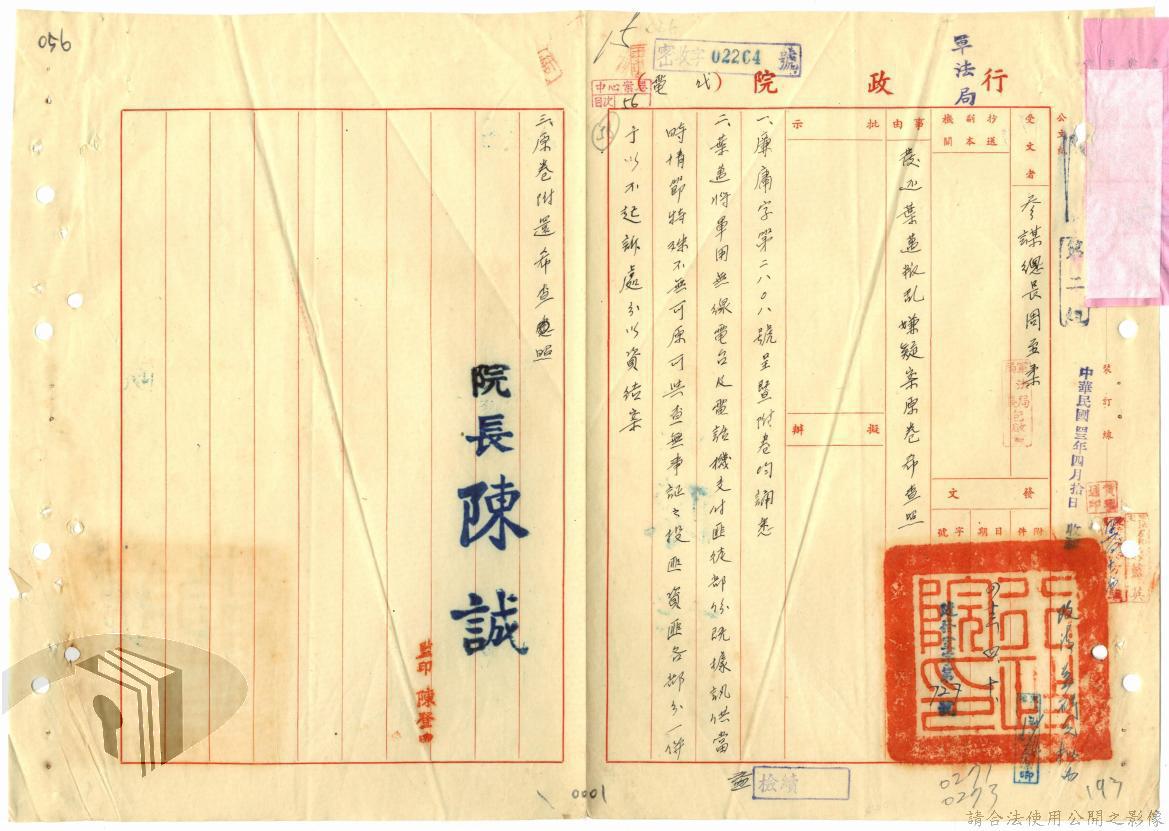 軍法局
行政院(代電)
密收字02204號
中心業務
目次
56
15
受文者
參謀總長周至柔
抄送副本機關
發文
附件
日期
字號
中華民國四三年四月拾日
裝訂線
事由
發還葉蓮叛亂嫌疑案原卷希查照
批示
擬辦
一、廉庸字第二八〇八號呈暨附卷均誦悉
二、葉蓮將軍用無線電台及電話機支付匪徒部份既據訊供當
時情節特殊不無可原可與查無事証之投匪資匪各部分一併
予以不起訴處分以資結案
三、原卷附還希查照
院長陳誠
監印
727
檢續
0271
0273
197
056
0001
請合法使用公開之影像